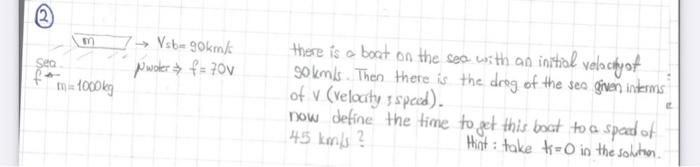 2
m → Vsb= 90km/s
sea
μwater ⇒ f=70V
f ←
m=1000kg
there is a boat on the sea with an initial velocity of
90km/s. Then there is the drag of the sea given interms
of v (velocity ; speed).
now define the time to get this boat to a speed of
45 km/s ? Hint : take ti=0 in the solution.